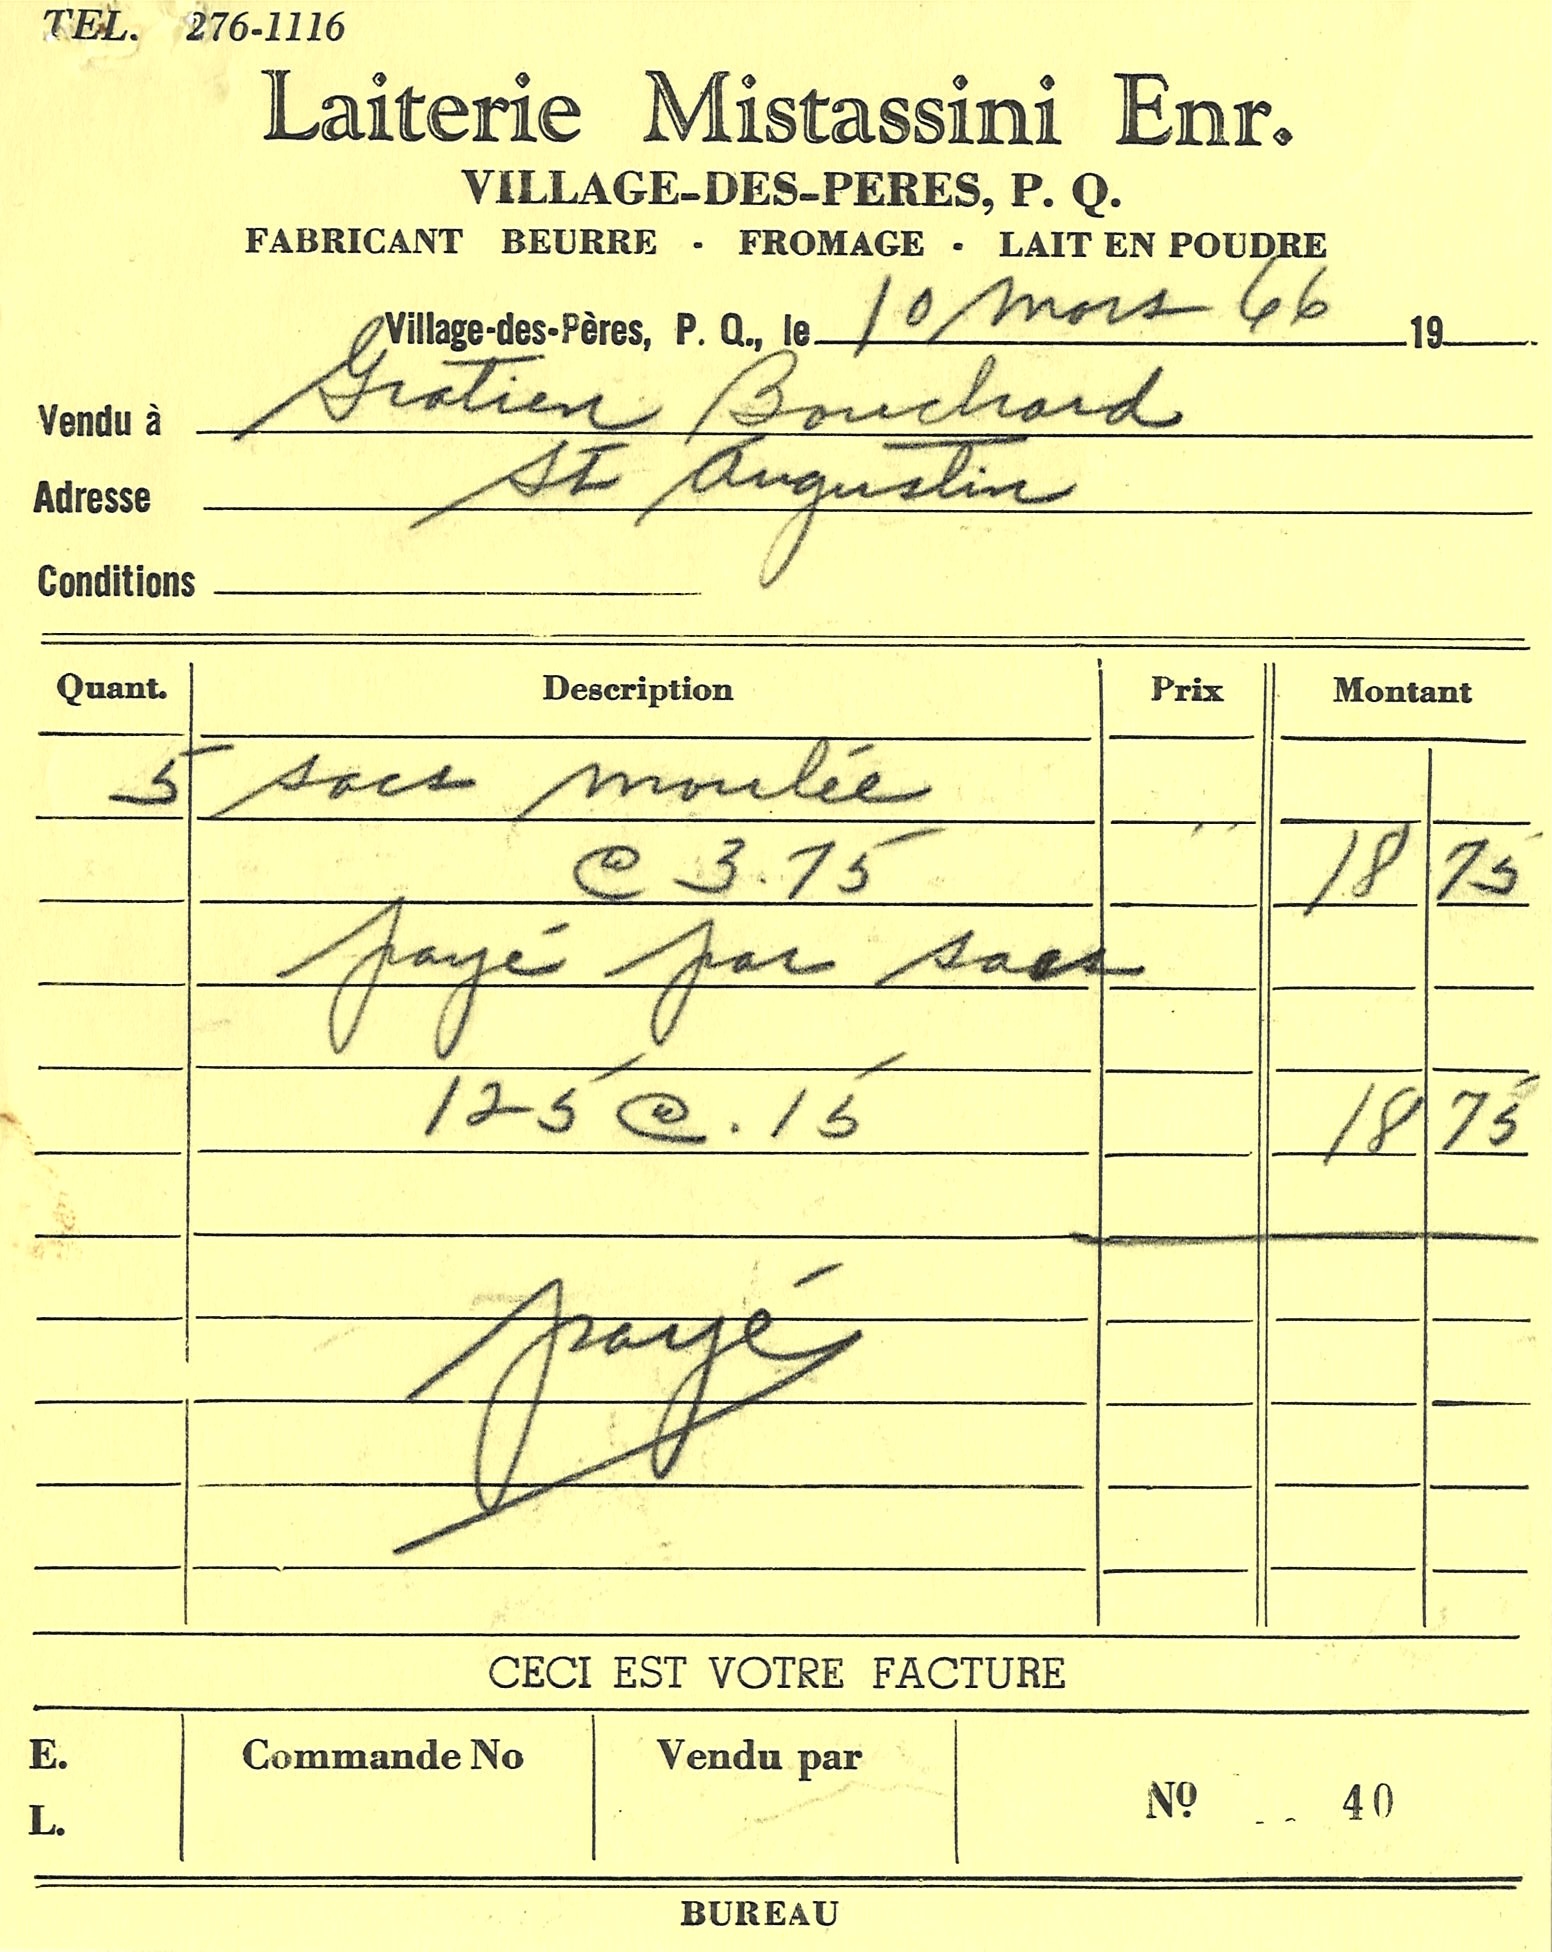 TEL. 276-1116
Laiterie Mistassini Enr.
VILLAGE-DES-PERES, P. Q.
FABRICANT BEURRE - FROMAGE - LAIT EN POUDRE
Village-des-Pères, P. Q., le 10 mars 66 19
Vendu à Gratien Bouchard
Adresse St Augustin
Conditions
Quant. Description Prix Montant
5 sacs moulée
@ 3.75 18 75
payé par sacs
125 @ .15 18 75
payé
CECI EST VOTRE FACTURE
E. Commande No Vendu par
L. Nº 40
BUREAU